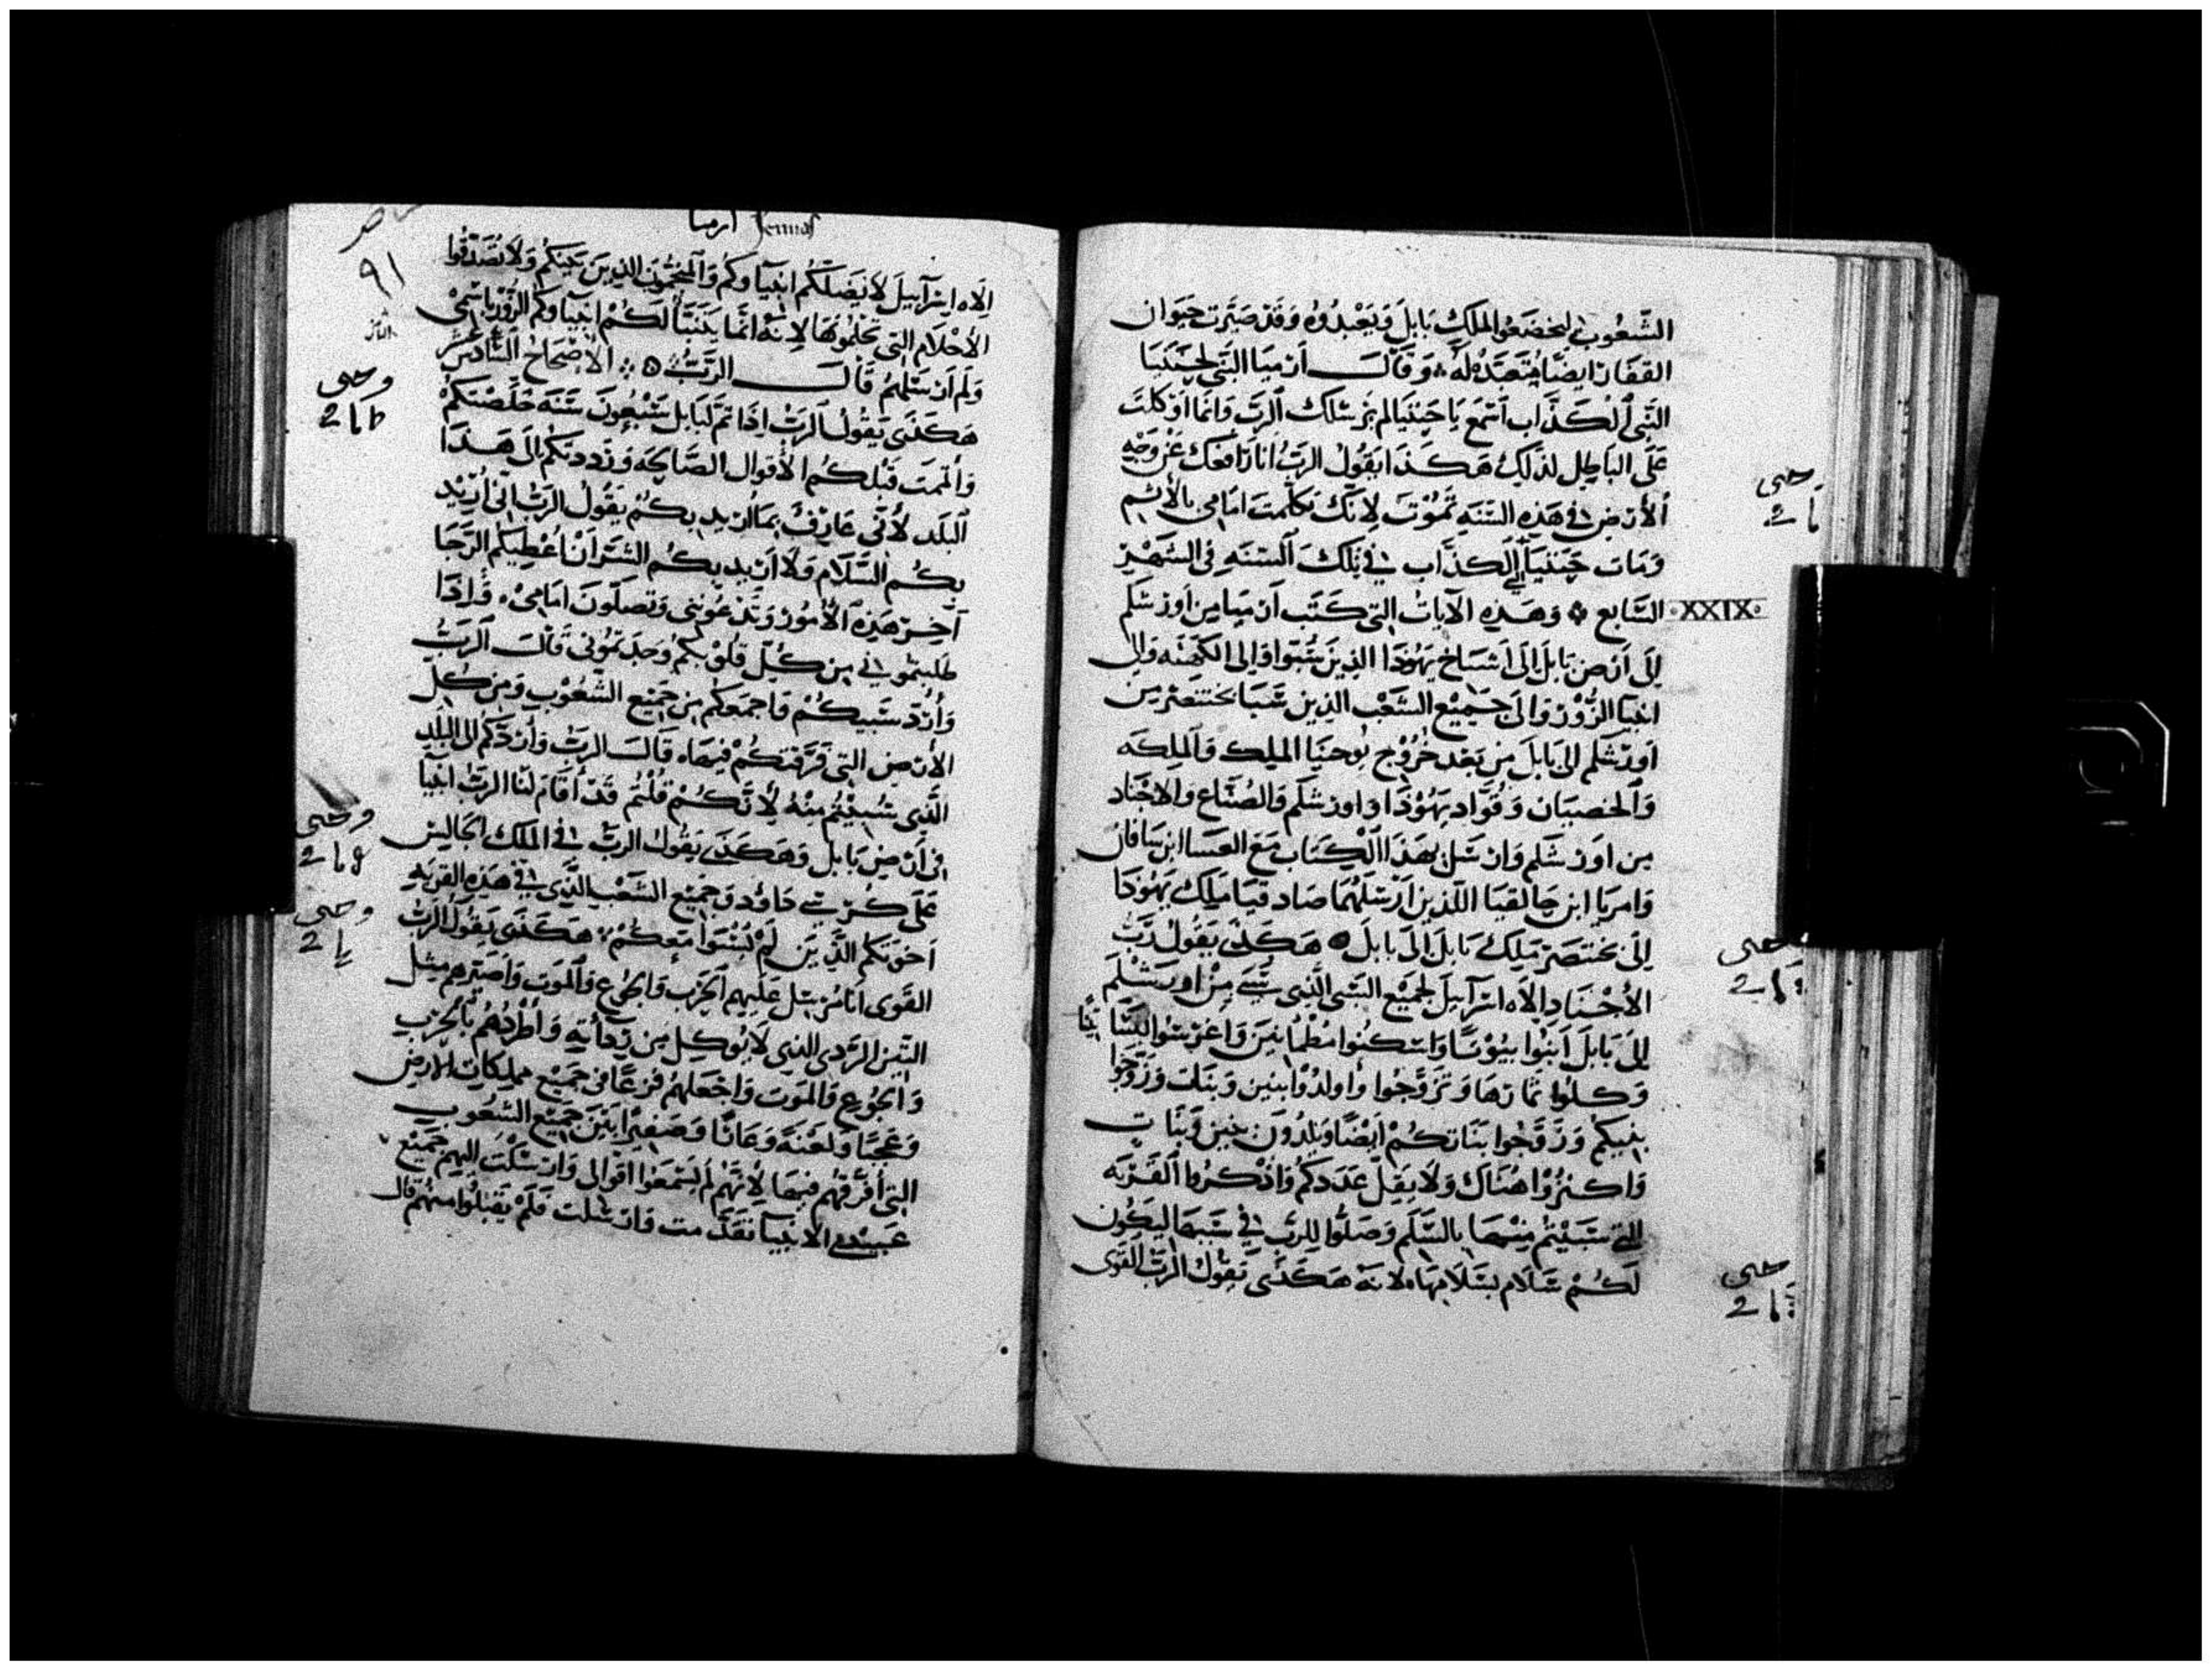 الشعوب ليخضعوا لملك بابل ويعبدوه وقد صيرت حيوان
القفار ايضًا متعبده له ۞ وقال ارميا النبي لحننيا
النبي الكذاب اسمع يا حننيا لم يرسلك الرب وانما اوكلت
على الباطل لذلك هكذا يقول الرب انا رافعك عن وجه
الأرض في هذه السنه تموت لانك تكلمت امامي بالاثم
ومات حننيا الكذاب في تلك السنه في الشهر
السابع ۞ وهذه الآيات التي كتب ارميا من اورشلم
XXIX
الى ارض بابل الى اشياخ يهوذا الذين سبوا والى الكهنه والى
انبيا الزور والى جميع الشعب الذين سبا بختنصر من
اورشلم الى بابل من بعد خروج يوحنيا الملك والملكه
والخصيان وقواد يهوذا واورشلم والصناع والاجناد
من اورشلم وارسل بهذا الكتاب مع العسا ابن سافان
وامريا ابن حالقيا اللذين ارسلهما صادقيا ملك يهوذا
الى بختنصر ملك بابل الى بابل ۞ هكذى يقول رب
الأجناد الاه اسرآييل لجميع السبى الذى سبى من اورشلم
الى بابل ابنوا بيوتًا واسكنوا مطمانين واغرسوا البسا تينا
وكلوا ثمارها وتزوجوا واولدوا بنين وبنات وزوجوا
بنيكم وزوجوا بناتكم ايضًا ويلدون بنين وبنات
واكثروا هناك ولا يقل عددكم واذكروا القريه
التي سبيتم منها بالسلم وصلوا للرب في سببها ليكون
لكم سلام بسلامها لانه هكذى يقول الرب القوى
ارميا
٩١
الاه اسرآييل لا يضلكم انبياوكم والمنجمون الذين بينكم ولا تصدقوا
الأحلام التي تحلمونها لانه انما يتنبأ لكم انبياوكم الزور باسمى
ولم ارسلهم قال الرب ۞ الأصحاح السادس عشر
هكذى يقول الرب اذا تم لبابل سبعون سنه خلصتكم
واتممت قبلكم الأقوال الصالحه ورددتكم الى هذا
البلد لأنى عارف بما اريد بكم يقول الرب انى اريد
بكم السلام ولا اريد بكم الشر ان اعطيكم الرجا
آخر هذه الأمور وتدعوننى وتصلون امامى واذا
طلبتموني من كل قلوبكم وجدتمونى قال الرب
وأرد سبيكم واجمعكم من جميع الشعوب ومن كل
الأرض التى فرقتكم فيها قال الرب وأردكم الى البلد
الذى سبيتم منه لأنكم قلتم قد أقام لنا الرب انبيآ
فى ارض بابل وهكذى يقول الرب في الملك الجالس
على كرسى داوود وجميع الشعب الذى في هذه القريه
اخوتكم الذين لم يسبوا معكم هكذى يقول الرب
القوى انا مرسل عليهم الحرب والجوع والموت واصيرهم مثل
التين الردى الذى لا يوكل من رداته واطردهم بالحرب
والجوع والموت واجعلهم فزعًا فى جميع مملكات الارض
وعجبًا ولعنة وعارًا وصفيرًا بين جميع الشعوب
التى أفرقهم فيها لأنهم لم يسمعوا اقوالى وارسلت اليهم جميع
عبيدى الانبيآ تقدمت وارسلت فلم يقبلوا منهم قال